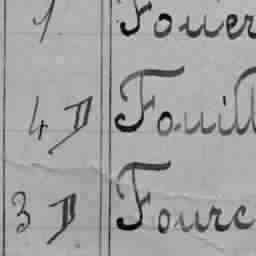 1 Fouer
4 D Fouill
3 D Fourc